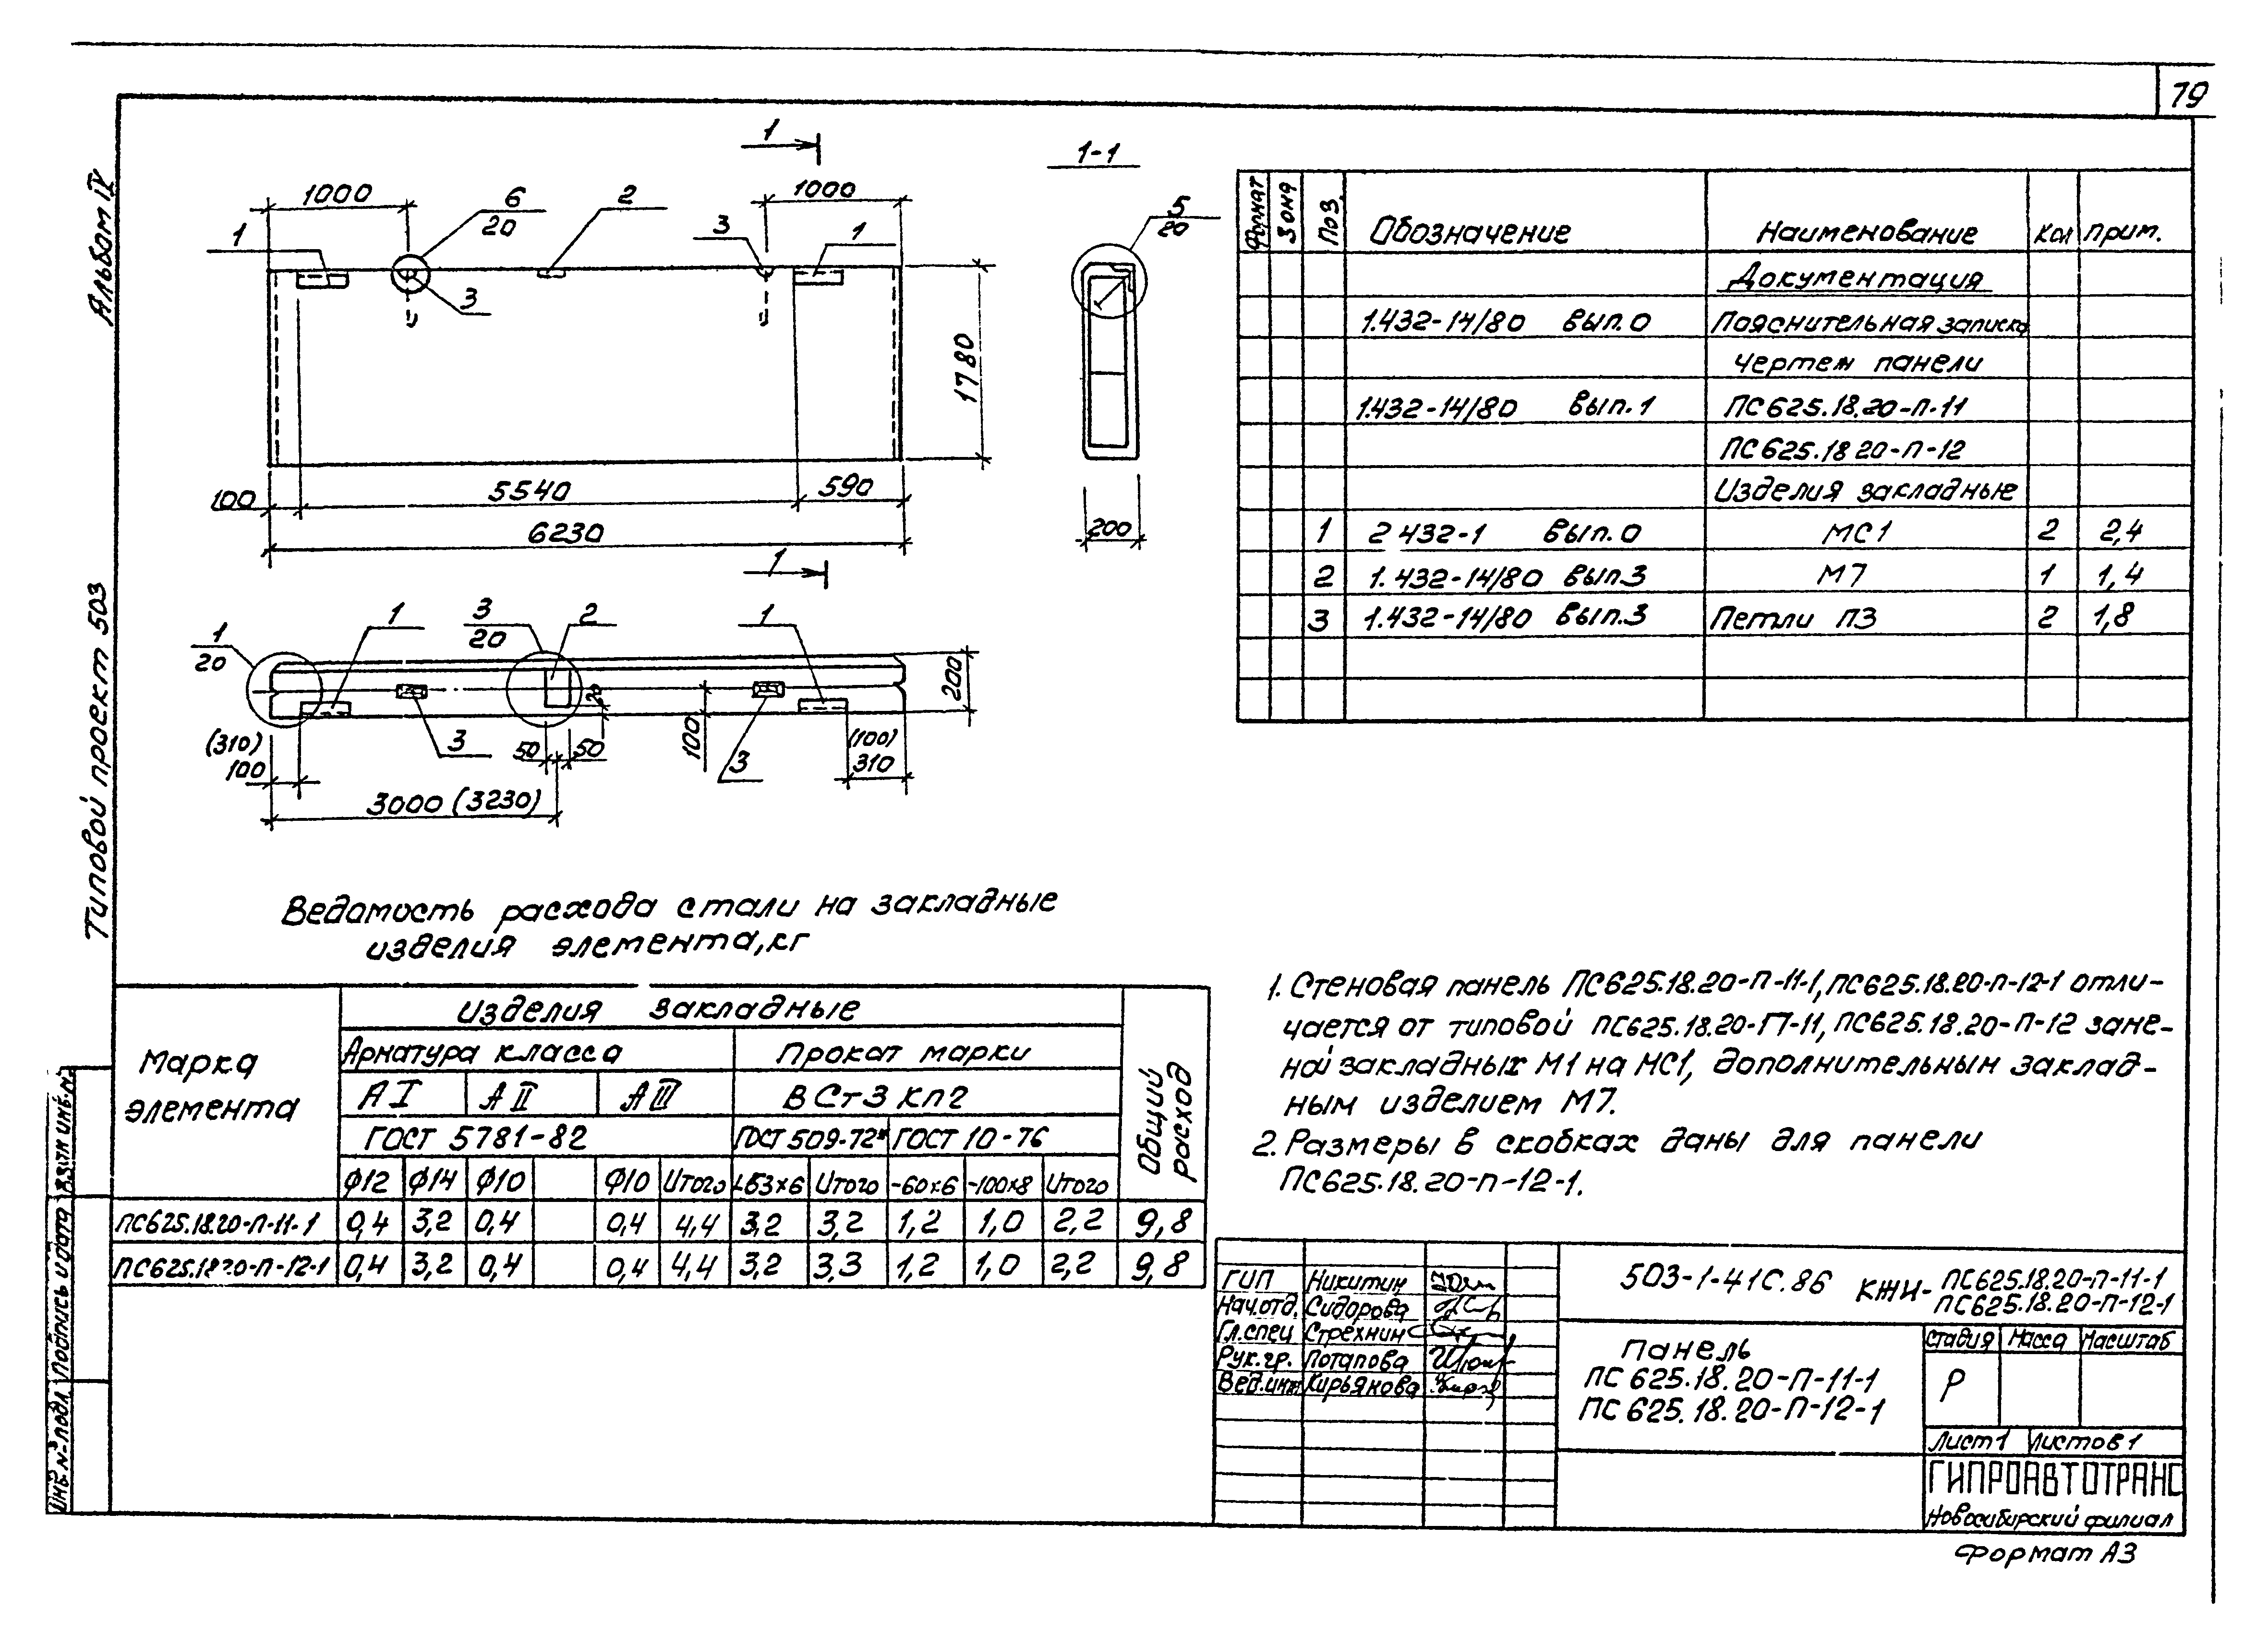 79
Альбом IV
Типовой проект 503
1
1-1
1000
6
20
2
1000
1
3
1
3
5
20
1780
100
5540
590
6230
200
1
1
20
1
3
20
2
1
200
20
100
(310)
100
3
50
50
3
(100)
310
3000 (3230)
Формат
Зона
Поз.
Обозначение
Наименование
Кол
Прим.
Документация
1.432-14/80 вып. 0 Пояснительная записка
Чертеж панели
1.432-14/80 вып. 1 ПС625.18.20-П-11
ПС625.18 20-П-12
Изделия закладные
1 2 432-1 вып. 0 МС1 2 2,4
2 1.432-14/80 вып.3 М7 1 1,4
3 1.432-14/80 вып.3 Петли П3 2 1,8
Ведомость расхода стали на закладные
изделия элемента, кг
Марка
элемента
Изделия закладные
Общий
расход
Арматура класса
Прокат марки
А I
А II
А III
В Ст3 кп2
ГОСТ 5781-82
ГОСТ 509-72*
ГОСТ 10-76
Ф12 Ф14 Ф10 Ф10 Итого L63×6 Итого -60×6 -100×8 Итого
ПС625.18.20-П-11-1 0,4 3,2 0,4 0,4 4,4 3,2 3,2 1,2 1,0 2,2 9,8
ПС625.18 20-П-12-1 0,4 3,2 0,4 0,4 4,4 3,2 3,3 1,2 1,0 2,2 9,8
1. Стеновая панель ПС625.18.20-П-11-1, ПС625.18.20-П-12-1 отли-
чается от типовой ПС625.18.20-П-11, ПС625.18.20-П-12 заме-
ной закладных М1 на МС1, дополнительным заклад-
ным изделием М7.
2. Размеры в скобках даны для панели
ПС625.18.20-П-12-1.
ГИП Никитин
Нач.отд. Сидорова
Гл.спец Стрехнин
Рук.гр. Потапова
Вед.инж Кирьянова
503-1-41С.86 КЖИ-
ПС625.18.20-П-11-1
ПС625.18.20-П-12-1
Панель
ПС 625.18.20-П-11-1
ПС 625.18.20-П-12-1
Стадия Масса Масштаб
Р
Лист 1 Листов 1
ГИПРОАВТОТРАНС
Новосибирский филиал
Формат А3
Взам инв.№
Подпись и дата
Инв.№ подл.